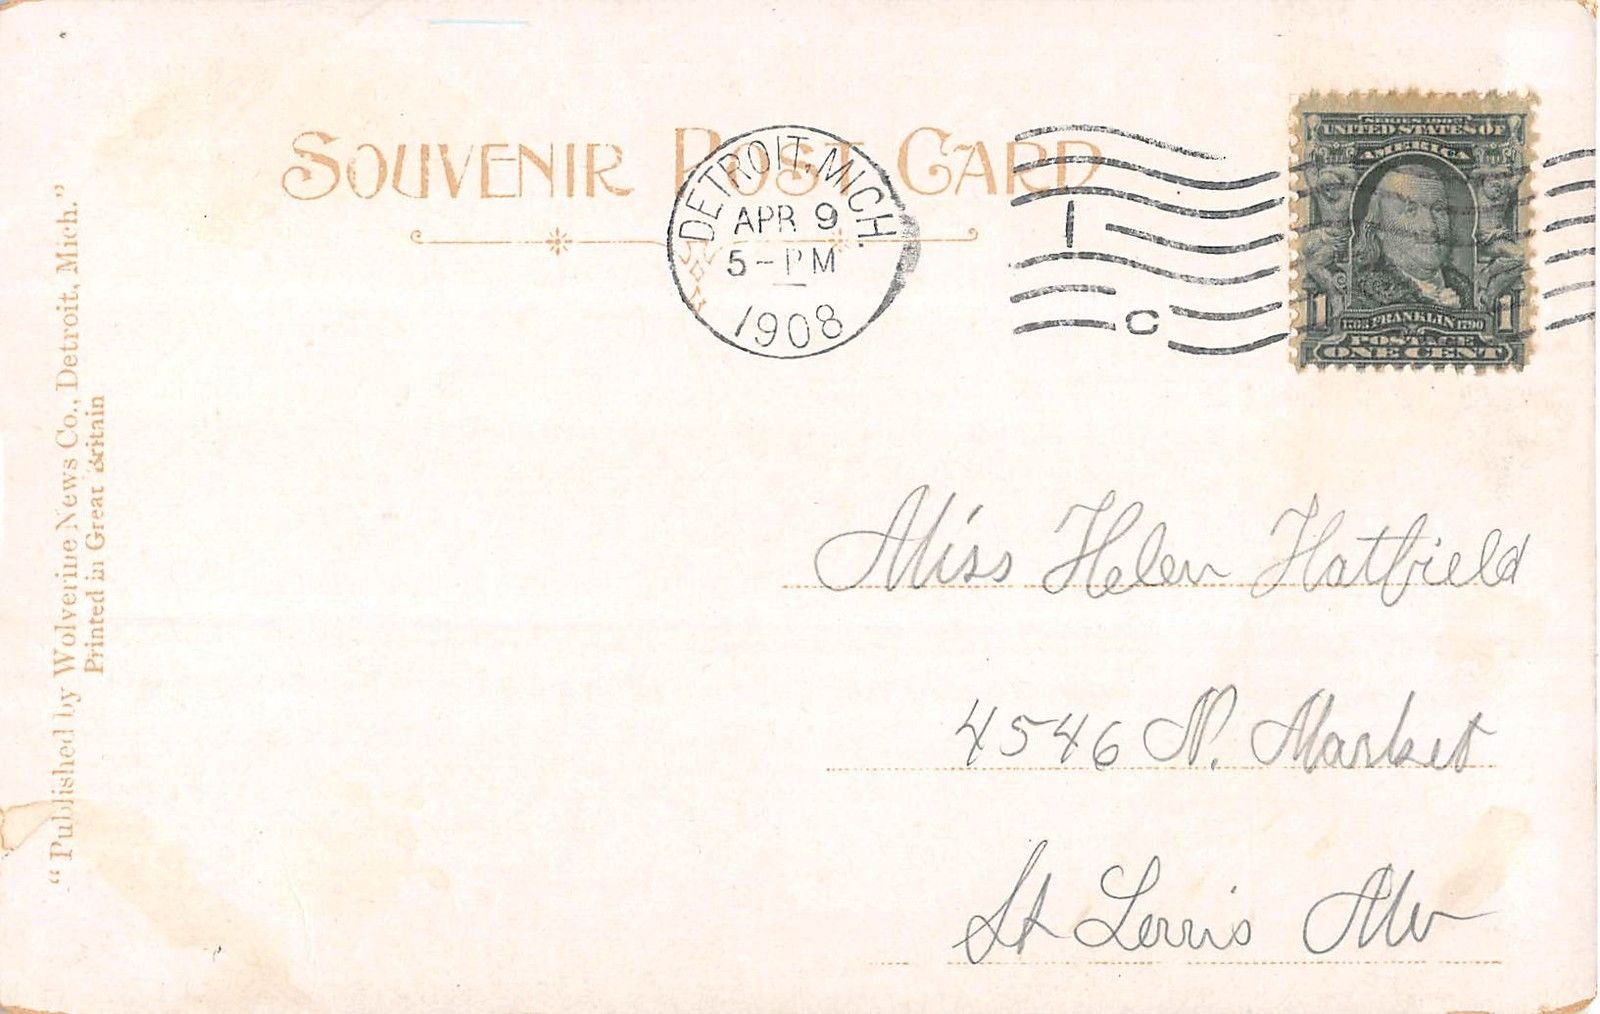 SOUVENIR POST CARD
DETROIT, MICH.
APR 9
5-PM
1908
1
C
SERIES 1902
UNITED STATES OF
AMERICA
1 1
1706 FRANKLIN 1790
POSTAGE
ONE CENT
"Published by Wolverine News Co., Detroit, Mich."
Printed in Great Britain
Miss Helen Hatfield
4546 N. Market
St Louis Mo